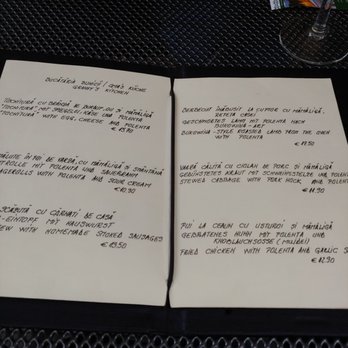 BUCĂTĂRIA BUNICII / OMA'S KÜCHE
GRANNY'S KITCHEN
TOCHITURĂ CU BRÂNZĂ DE BURDUF, OU ȘI MĂMĂLIGĂ
"TOCHITURA" MIT SPIEGELEI KÄSE UND POLENTA
"TOCHITURA" WITH EGG CHEESE AND POLENTA
€ 13.90
ĂLUȚE ÎN FOI DE VARZĂ, CU MĂMĂLIGĂ ȘI SMÂNTÂNĂ
MIT POLENTA UND SAUERRAHM
WITH POLENTA AND SOUR CREAM
€ 10.90
CU CÂRNAȚI DE CASĂ
-EINTOPF MIT HAUSWURST
EW WITH HOMEMADE STOKED SAUSAGES
€ 13.50
BERBECUȚ ÎNĂBUȘIT LA CUPTOR CU MĂMĂLIGĂ,
REȚETA CASEI
GESCHMORTES LAMM MIT POLENTA NACH
BUKOWINA-ART
BUKOWINA-STYLE ROASTED LAMB FROM THE OVEN
WITH POLENTA
€ 17.50
VARZĂ CĂLITĂ CU CIOLAN DE PORC ȘI MĂMĂLIGĂ
GEDÜNSTETES KRAUT MIT SCHWEINSSTELZE UND POLENTA
STEWED CABBAGE WITH PORK HOCK AND POLENTA
€ 14.90
PUI LA CEAUN CU USTUROI ȘI MĂMĂLIGĂ
GEBRATENES HUHN MIT POLENTA UND
KNOBLAUCHSOSSE (MUJDEI)
FRIED CHICKEN WITH POLENTA AND GARLIC S
€ 12.90